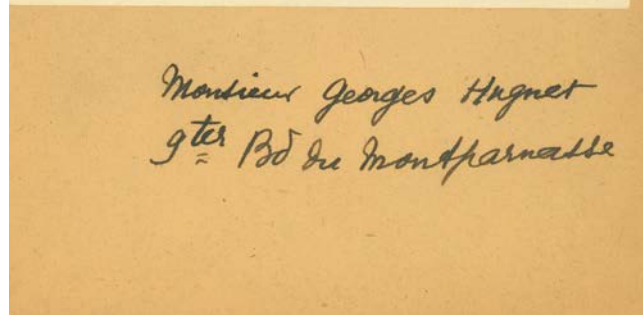 Monsieur Georges Hugnet
9ter Bd du Montparnasse